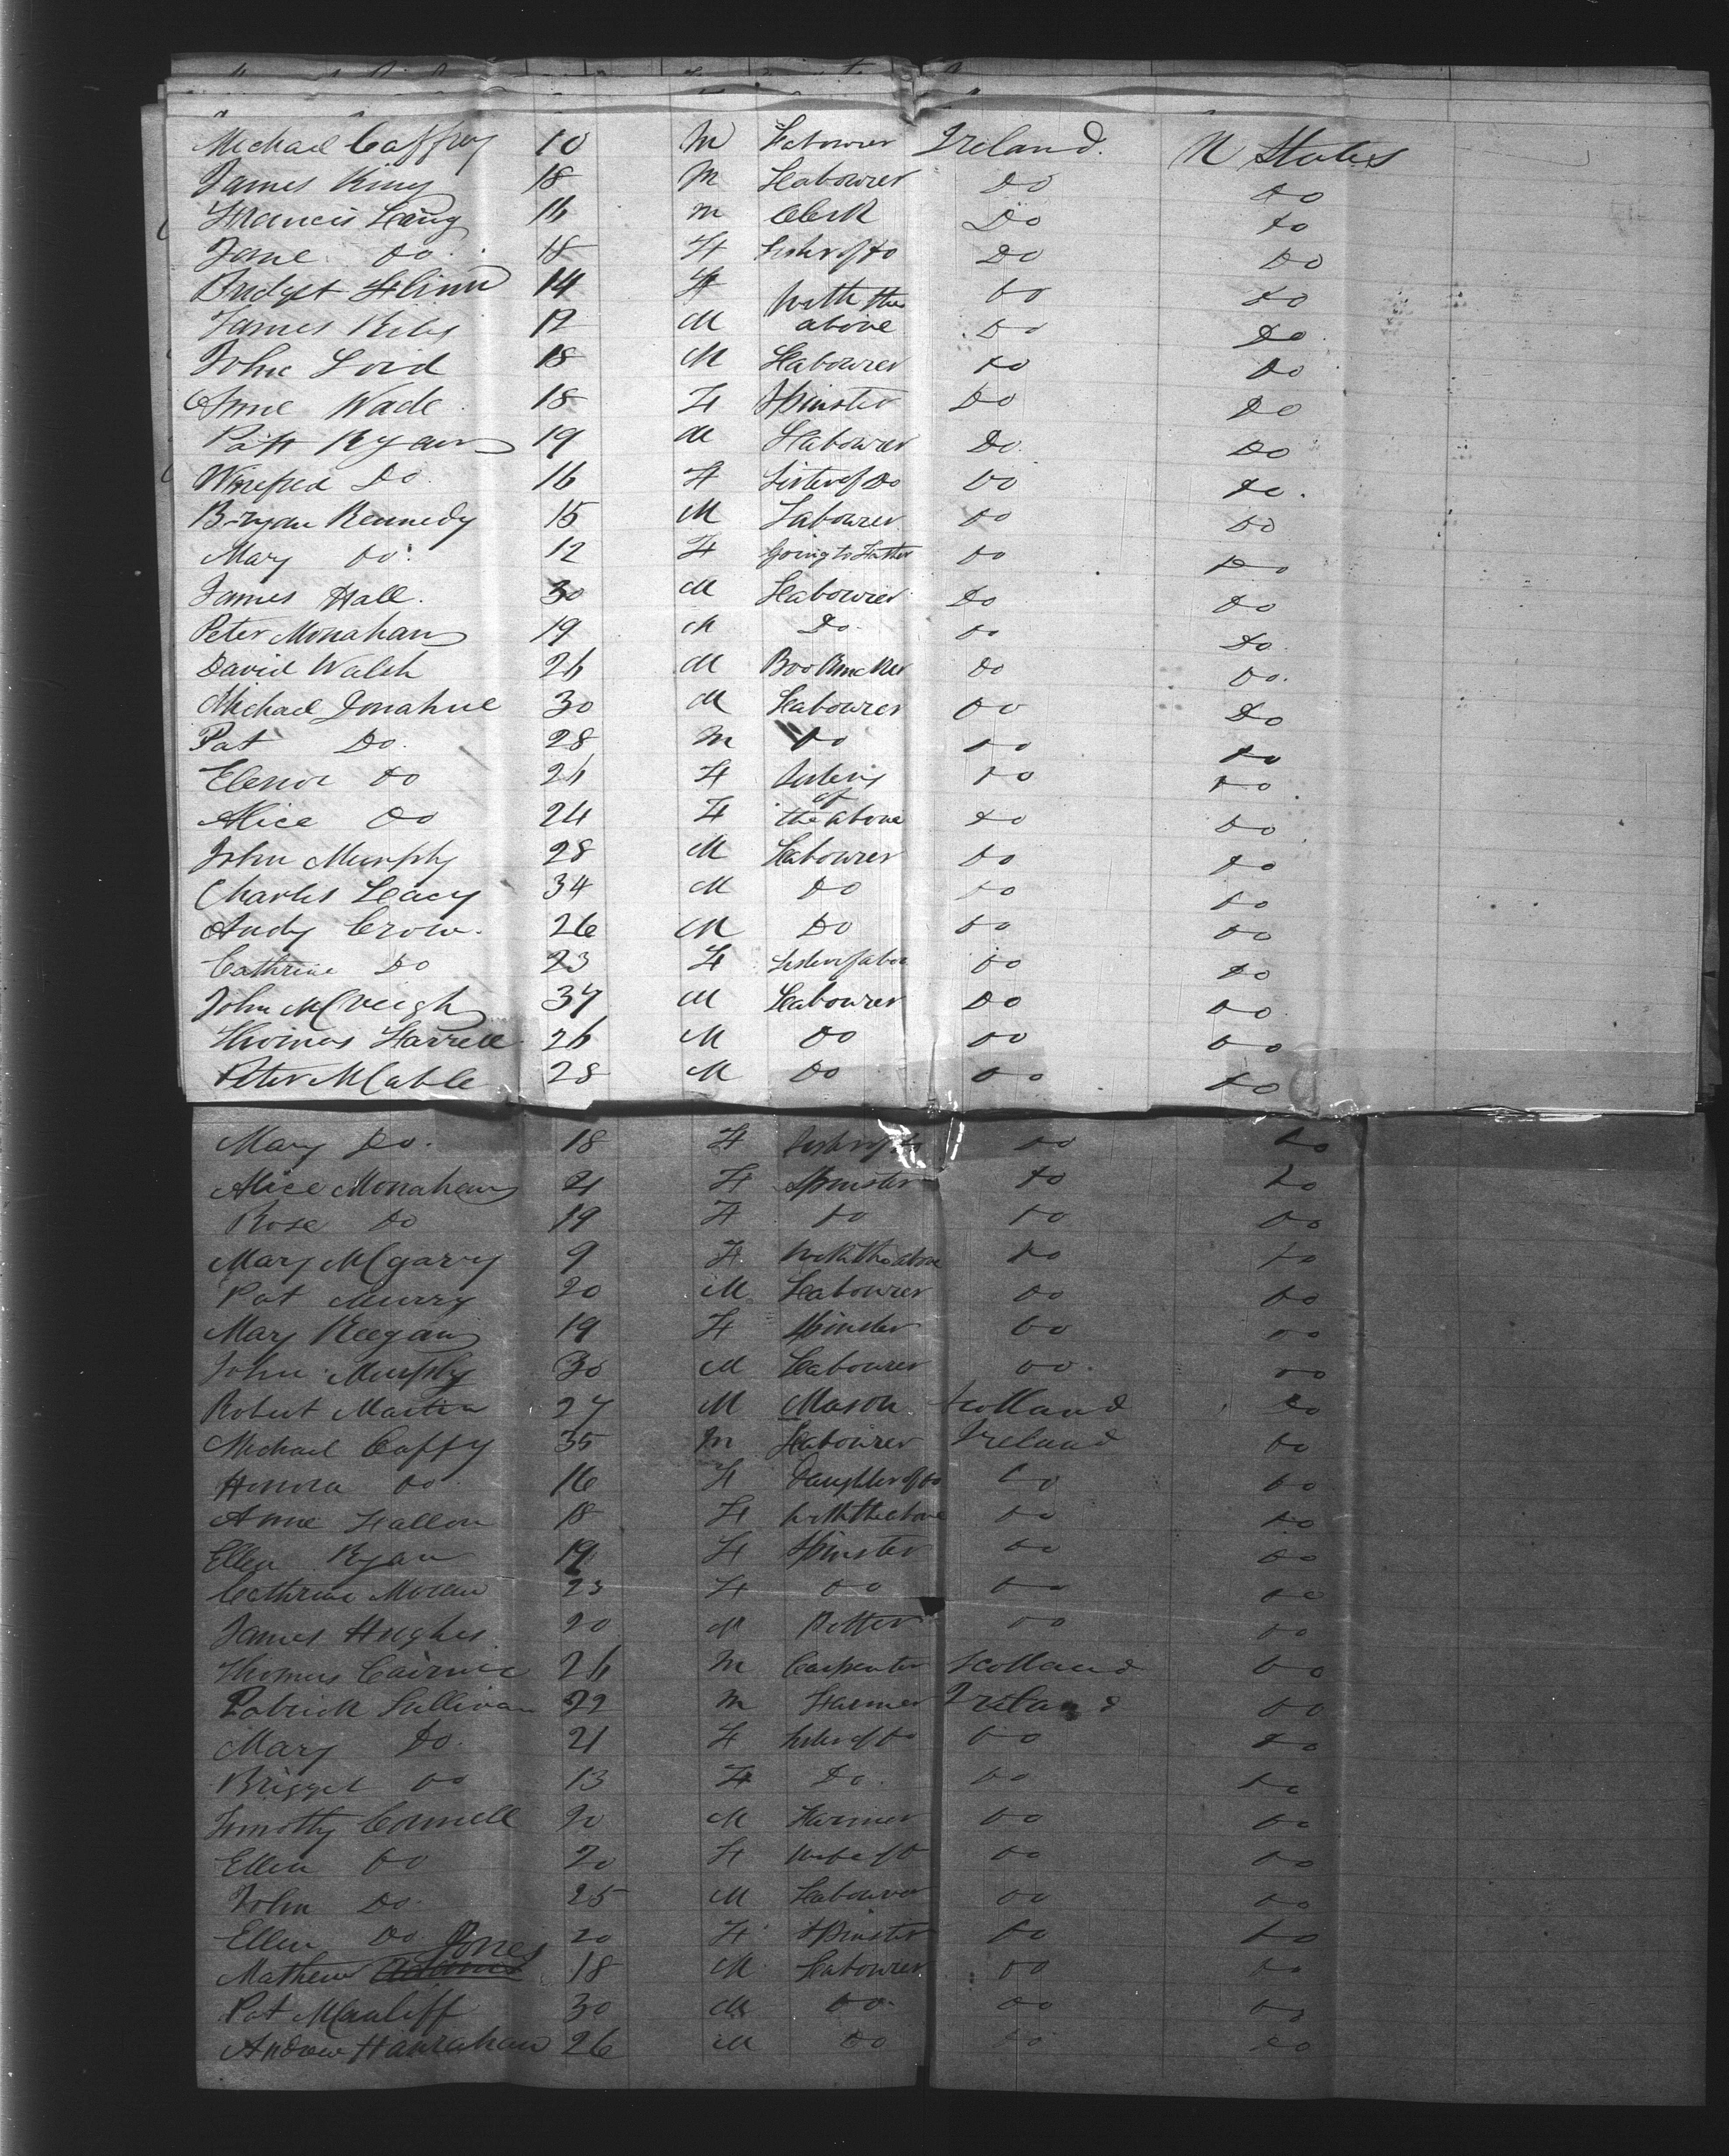 Michael Caffrey 10 M Labourer Ireland. U States
James King 18 M Labourer Do Do
Francis Laing 16 M Clerk Do Do
Jane Do 18 F Sister of do Do Do
Bridget Flinn 14 F With the Do Do
James 17 M above Do Do
John Lord 18 M Labourer Do Do
Anne Wade 18 F Spinster Do Do
Patt Ryan 19 M Labourer Do. Do
Winefred Do. 16 F Sister of Do Do Do.
Bryan Kennedy 15 M Labourer Do Do
Mary Do. 12 F Going to Father Do Do
James Hall. 30 M Labourer Do Do
Peter Monahan 19 M Do Do Do.
David Walsh 26 M Do Do.
Michael Donahue 30 M Labourer Do Do
Pat Do. 28 M Do Do Do
Elenor Do 26 F Sisters Do Do.
of
Alice Do 24 F the above Do Do
John Murphy 28 M Labourer Do Do
Charles Leacy 34 M Do Do Do
Andy Crow. 26 M Do Do Do
Cathrine Do 23 F Sister of abov Do Do
John McVeigh 37 M Labourer Do Do
Thomas Farrell 26 M Do Do Do
Peter McCable 28 M Do Do Do
Mary Do. 18 F Sister of do Do Do
Alice Monahan 21 F Spinster Do Do
Rose Do 19 F Do Do Do
Mary McGarry 9 F With the above Do Do
Pat Murry 20 M Labourer Do Do
Mary Keegan 19 F Spinster Do Do
John Murphy 30 M Labourer Do. Do
Robert Martin 27 M Mason Scotland Do
Michael Caffy 35 M Labourer Ireland Do
Honora Do 16 F Daughter of do Do Do
Anne Fallon 18 F With the above Do Do
Ellen Ryan 19 F Spinster Do Do
Cathrine Moran 23 F Do Do Do
James Hughes 20 M Potter Do Do
Thomas 26 M Carpenter Scotland Do
Patrick Sullivan 22 M Farmer Ireland Do
Mary Do. 21 F Sister of do Do Do
Brigget Do 13 F Do. Do Do
Timothy Connell 20 M Farmer Do Do
Ellen Do 20 F Wife of Do Do Do
John Do. 25 M Labourer Do Do
Ellen Do 20 F Spinster Do Do
Jones
Mathew 18 M Labourer Do Do
Pat McAuliff 30 M Do. Do Do
Andrew Hanrahan 26 M Do Do Do